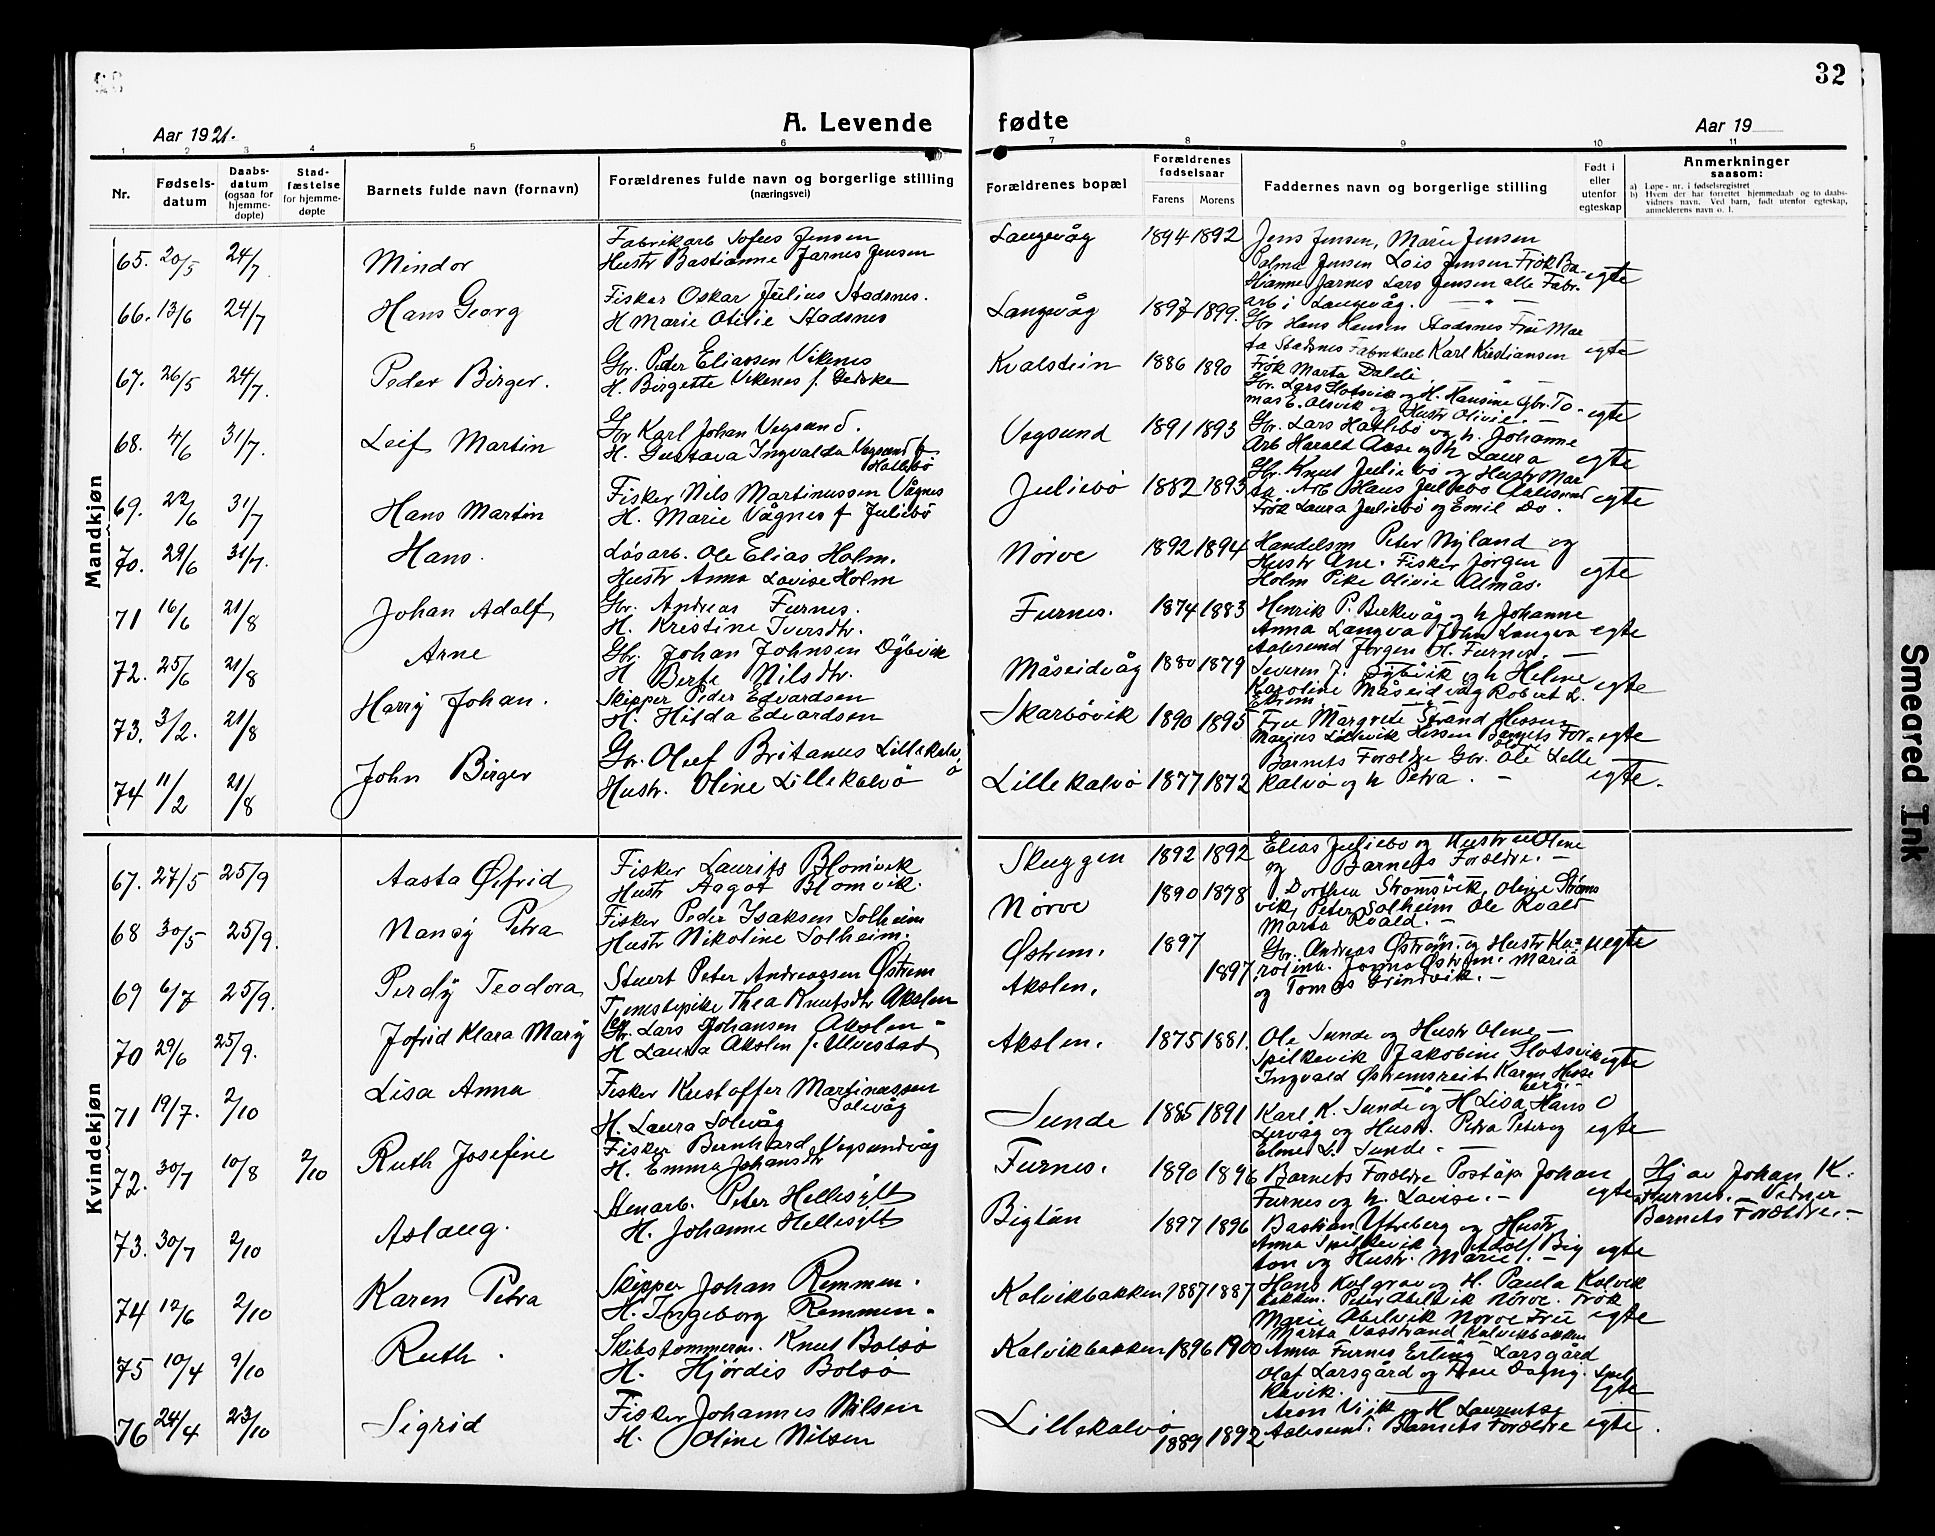 32
Aar 1921.
A. Levende fødte
Aar 19
1 2 3 4 5 6 7 8 9 10 11
Nr.
Fødsels-
datum
Daabs-
datum
(ogsaa for
hjemme-
døpte)
Stad-
fæstelse
for hjemme-
døpte
Barnets fulde navn (fornavn)
Forældrenes fulde navn og borgerlige stilling
(næringsvei)
Forældrenes bopæl
Forældrenes
fødselsaar
Farens Morens
Faddernes navn og borgerlige stilling
Født i
eller
utenfor
egteskap
Anmerkninger
saasom:
a) Løpe-nr. i fødselsregistret
b) Hvem der har forrettet hjemmedaab og to daabs-
vidners navn. Ved barn, født utenfor egteskap,
anmelderens navn o. l.
Mandkjøn
65. 20/5 24/7 Mindor
Fabrikarb Sofus Jensen
Hustr Bastianne Jarnes Jensen
Langevåg 1894 1892
Jens Jensen, Marie Jensen
Palma Jensen Lois Jensen Frøk Ba-
stianne Jarnes Lars Jensen alle Fabr.
arb i Langevåg.
egte
66. 13/6 24/7 Hans Georg
Fisker Oskar Julius Stadsnes.
H Marie Otilie Stadsnes
Langevåg 1897 1899.
Gbr Hans Hansen Stadsnes Fru Mar
ta Stadsnes Fabrikarb Karl Kristiansen
Frøk Marta Daldi
egte
67. 26/5 24/7. Peder Birger.
Gbr. Peder Eliassen Vikenes
H. Birgette Vikenes f. Geiske
Kvalstein 1886 1890
Gbr. Lars Slotsvik og H. Hansine Gbr. To-
mas E. Olsvik og Hustr Olivie.
egte
68. 4/6 31/7. Leif Martin
Gbr Karl Johan Vegsund.
H. Gustava Ingvalda Vegsund f
Hatlebø
Vegsund 1891 1893
Gbr. Lars Hatlebø og h. Johanne
Arb Harald Aase og h Laura
egte
69. 22/6 31/7 Hans Martin
Fisker Nils Martinussen Vågnes
H. Marie Vågnes f Juliebø
Juliebø 1882 1893
Gbr. Knut Juliebø og Hustr Mar
ta. Arb Hans Juliebø Aalesund
Frøk Laura Juliebø og Emil Do.
egte
70. 29/6 31/7. Hans.
Løsarb. Ole Elias Holm.
Hustr Anna Lovise Holm
Nørve 1892 1894
Handelsm Peter Nyland og
Hustr Ane. Fisker Jørgen
Holm Pike Olivie Almås.
egte
71 16/6 21/8 Johan Adolf
Gbr. Andreas Furnes.
H. Kristine Iversdtr.
Furnes. 1874 1883
Henrik P. Berkevåg og h Johanne
Anna Langva John Langva
Aalesund Jørgen H. Furnes.
egte
72. 25/6 21/8 Arne
Gbr. Johan Johnsen Dybvik
H Berte Nilsdtr.
Måseidvåg 1880 1879
Severin J. Dybvik og h Heline
Karoline Måseidvåg Robert L.
egte
73. 3/2. 21/8 Harry Johan.
Skipper Peder Edvardsen
H. Hilda Edvardsen
Skarbøvik 1890 1895
Fru Margrete Strand Hessen
Barnets For-
egte
74 11/2 21/8 John Birger
Gbr. Oluf Britanus Lillekalv
ø
Hustr. Oline Lillekalvø
Lillekalvø 1877 1872
Barnets Forældre Gbr. Ole Lille
kalvø og h Petra. -
egte.
Kvindekjøn
67. 27/5 25/9 Aasta Øifrid
Fisker Laurits Blomvik
Hustr Aagot Blomvik.
Skuggen 1892 1892
Elias Juliebø og Hustru Oline
og Barnets Forældre. -
68 30/5 25/9. Nancy Petra
Fisker Peder Isaksen Solheim
Hustr Nikoline Solheim.
Nørve 1890 1878
Dorthea Strømsvik, Oline Strøms
vik, Peter Solheim Ole Roald
Marta Roald. -
69 6/7 25/9. Perdy Teodora
Stuert Peter Andreassen Østrem
Tjenestepike Thea Knutsdtr Akslen
Østrem. 1897
Akslen. 1897
Gbr. Andreas Østrem. og Hustr Ka-
rolina. Jonna Østrem. Maria
og Tomas Grindvik. -
uegte
70 29/6 25/9. Jofrid Klara Mary
Gbr. Lars Johansen Akslen -
H Laura Akslen f. Ulvestad
Akslen. 1875 1881.
Ole Sunde og Hustr Oline -
Spilkevik Jakobine Slotsvik
Ingvald Østremsreit Karen Hesse
berg. -
egte
71 19/7. 2/10 Lisa Anna
Fisker Kristoffer Martinussen
Solevåg
H. Laura Solevåg
Sunde 1885 1891
Karl K. Sunde og H Lisa Hans O
Lervåg og Hustr. Petra Peter og
Eline L. Sunde. -
egte
72. 30/7 10/8 2/10 Ruth Josefine
Fisker Bernhard Vegsundvåg
H. Emma Johansdtr
Furnes. 1890 1896
Barnets Forældre Poståp. Johan
Furnes og h. Lovise. -
egte
Hj av Johan K.
Furnes. - Vidner
Barnets Forældre. -
73. 30/7 2/10 Aslaug.
Stenarb. Peter Hellesylt
H. Johanne Hellesylt
Bigtún 1897 1896
Bastian Ytreberg og Hustr
Anna Spilkevik Adolf Big
ton og Hustr. Marie. -
egte
74 12/6 2/10 Karen Petra
Skipper Johan Remmen.
H. Ingeborg Remmen.
Kolvikbakken 1887 1887
Hans Kolgrov og H. Paula Kolvik
bakken. Peter Abelvik Nørve. Frøk
Marie Abelvik Nørve Fru
Marta Vasstrand Kolvikbakken
egte
75 10/4 9/10 Ruth.
Skibstømmerm. Knut Bolsø
H. Hjørdis Bolsø
Kolvikbakken 1896 1900
Anna Furnes Erling Larsgård
Olaf Larsgård og Fru Dagny. Spil
kevik.
egte
76 24/4 23/10 Sigrid
Fisker Johannes Nilsen
H. Oline Nilsen
Lillekalvø 1889 1892
Aron Vijk og H Laurentse
Aalesund. Barnets Forældre
egte.
Smeared Ink